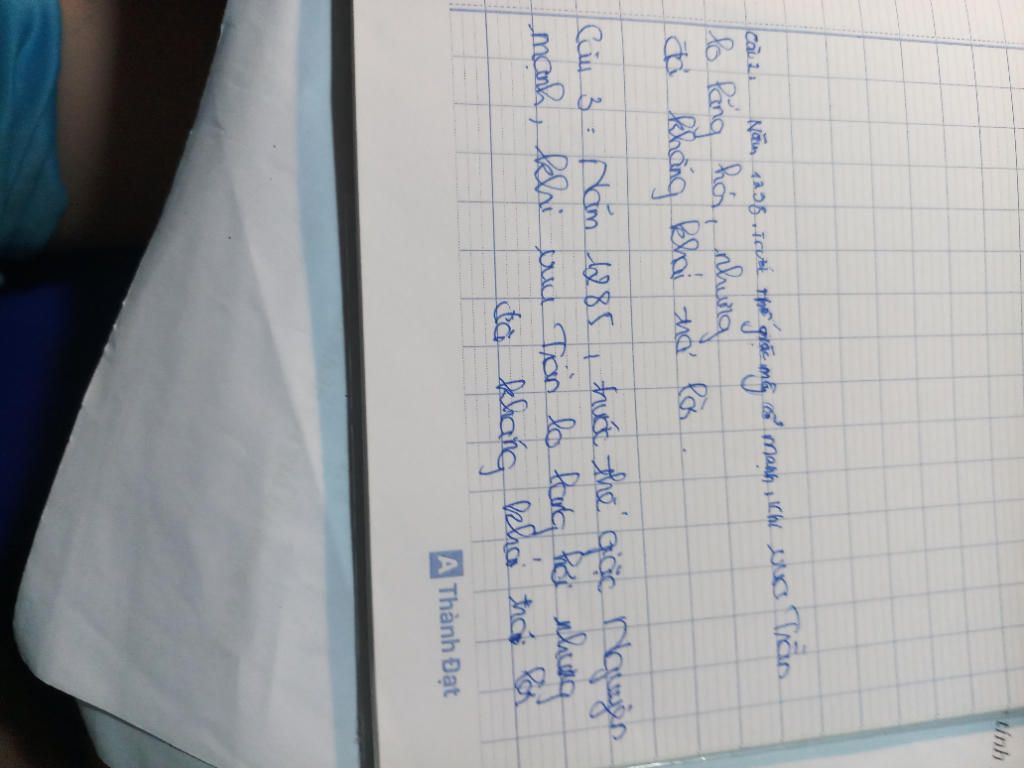 Câu 2: Năm 1258, trước thế giặc mông cổ mạnh, khi vua Trần
lo lắng hỏi, nhưng
đã khẳng khái trả lời.
Câu 3: Năm 1285, trước thế giặc Nguyện
mạnh, khi vua Trần lo lắng hỏi nhưng
đã khẳng khái trả lời
A Thành Đạt
tính